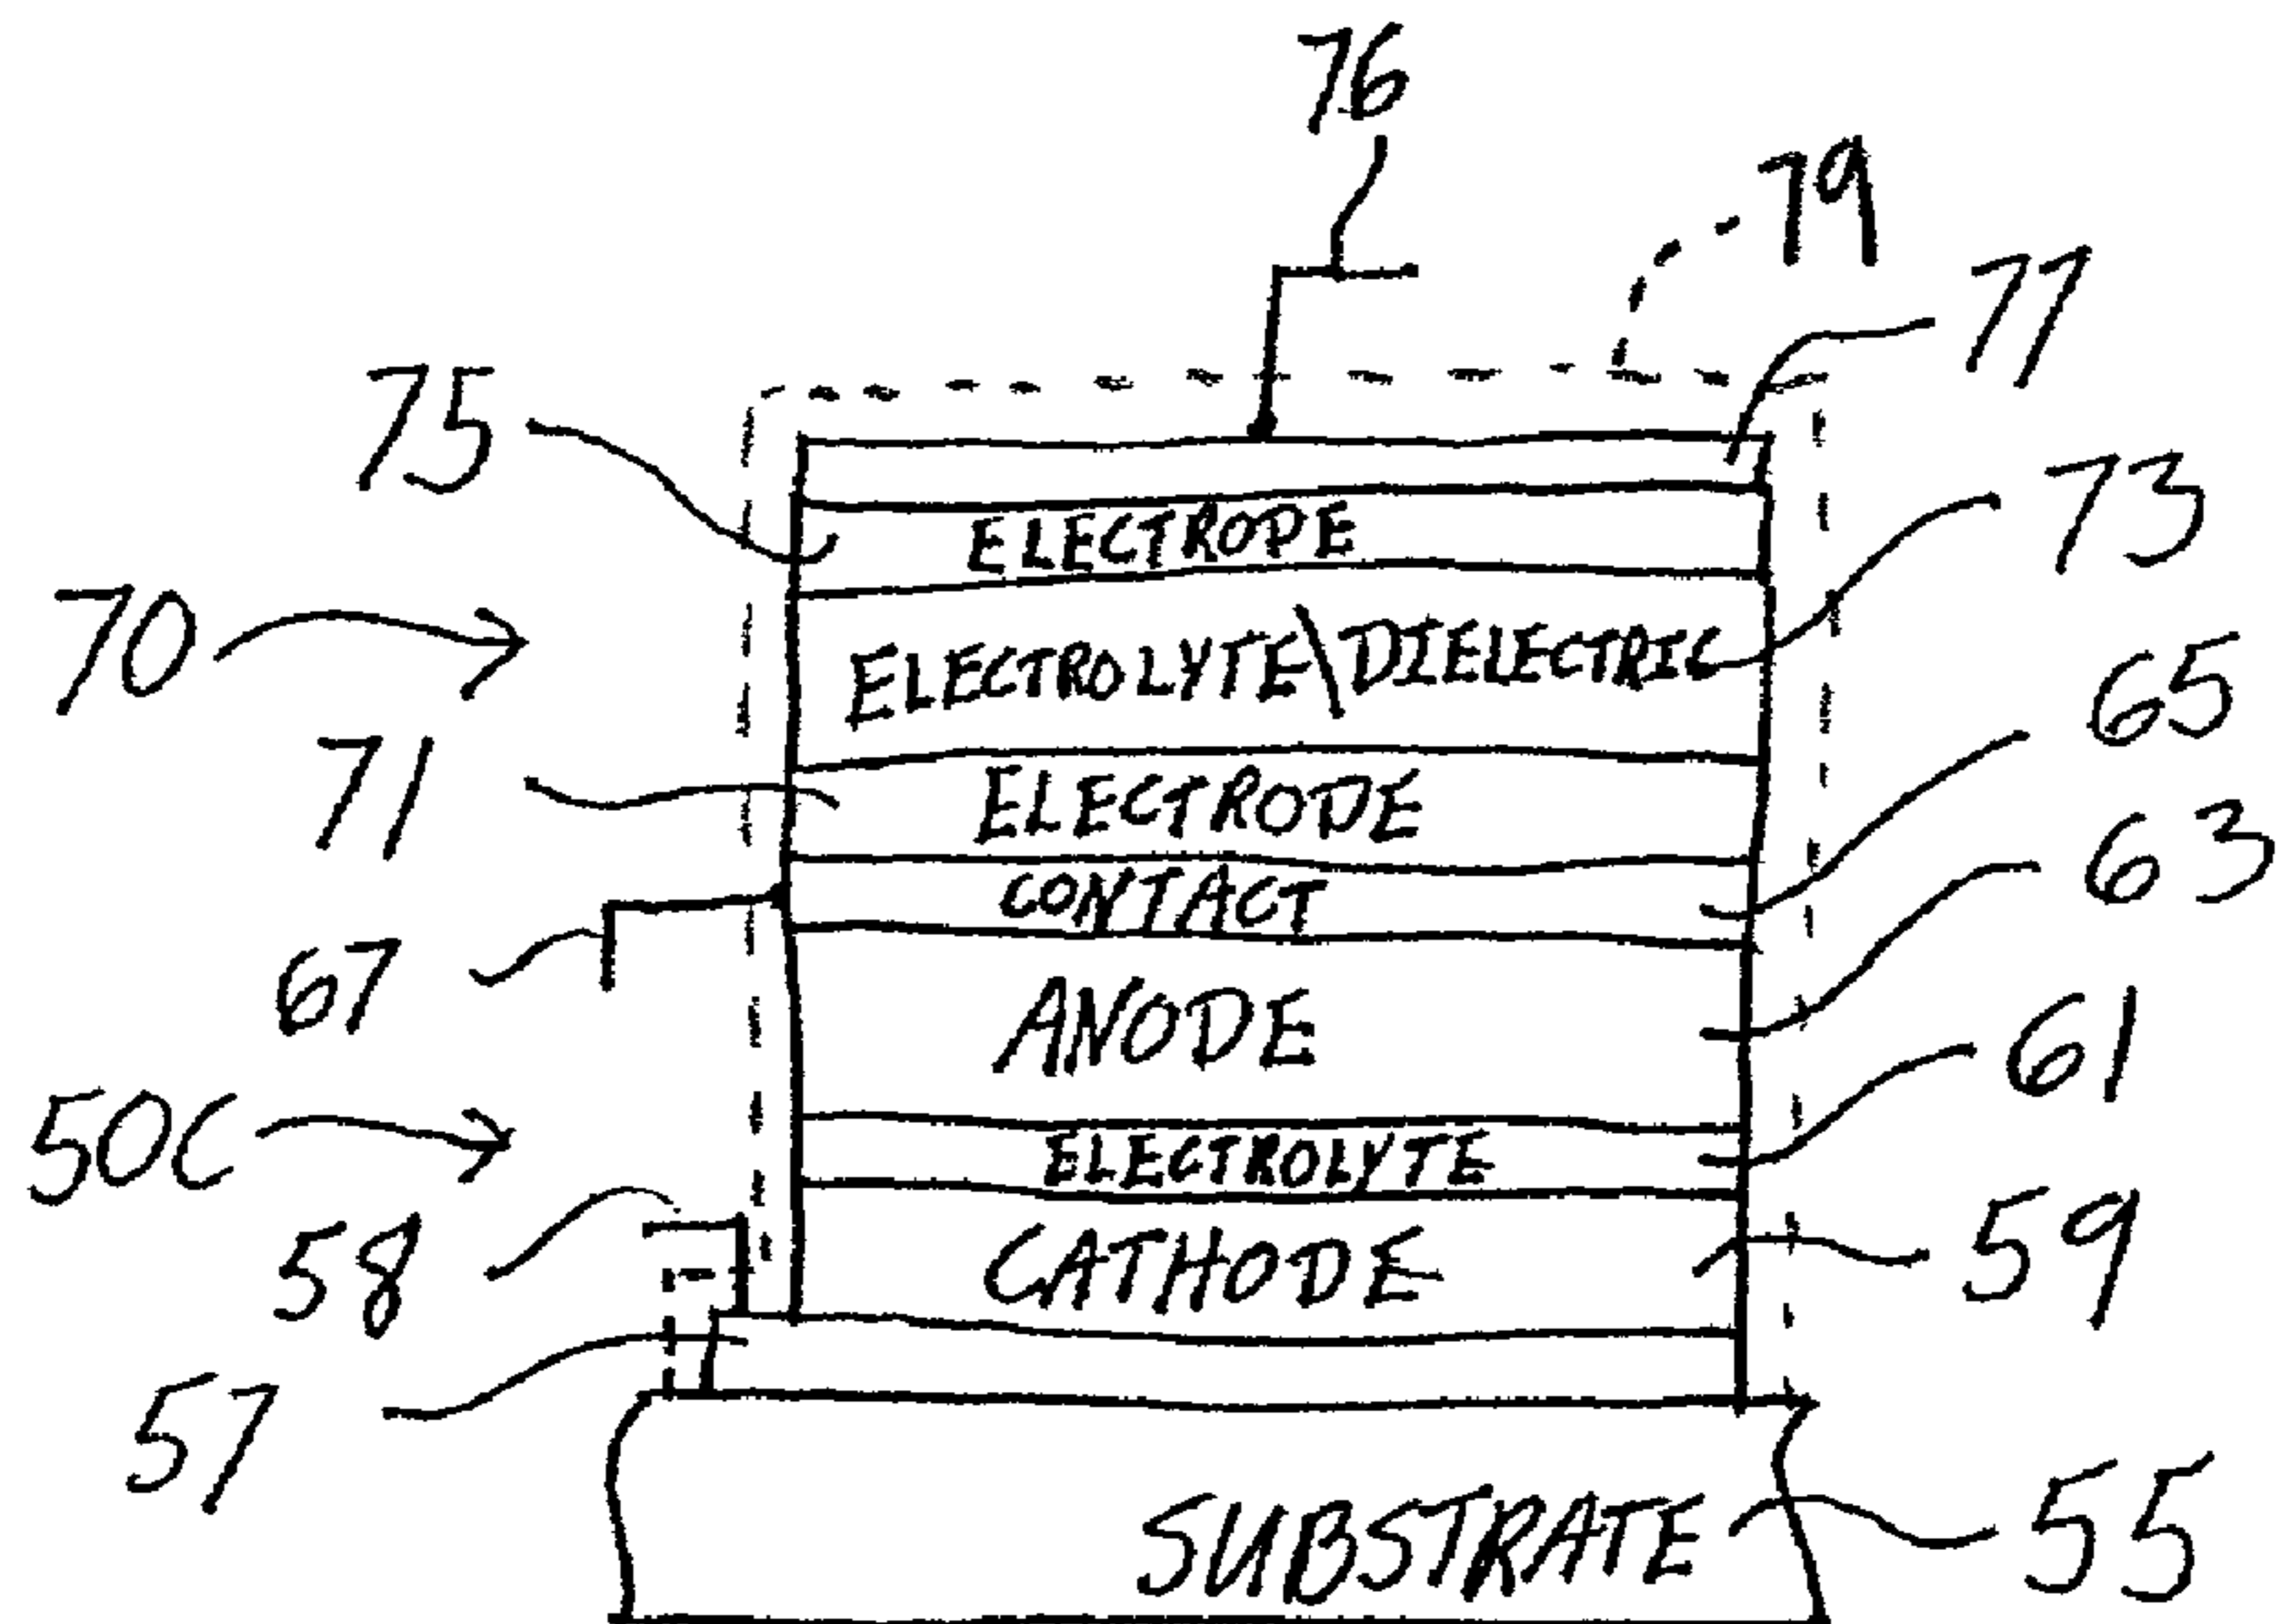 76
79
77
75
ELECTRODE
73
70
ELECTROLYTE\DIELECTRIC
65
71
ELECTRODE
63
CONTACT
67
ANODE
61
50C
ELECTROLYTE
59
58
CATHODE
57
SUBSTRATE
55